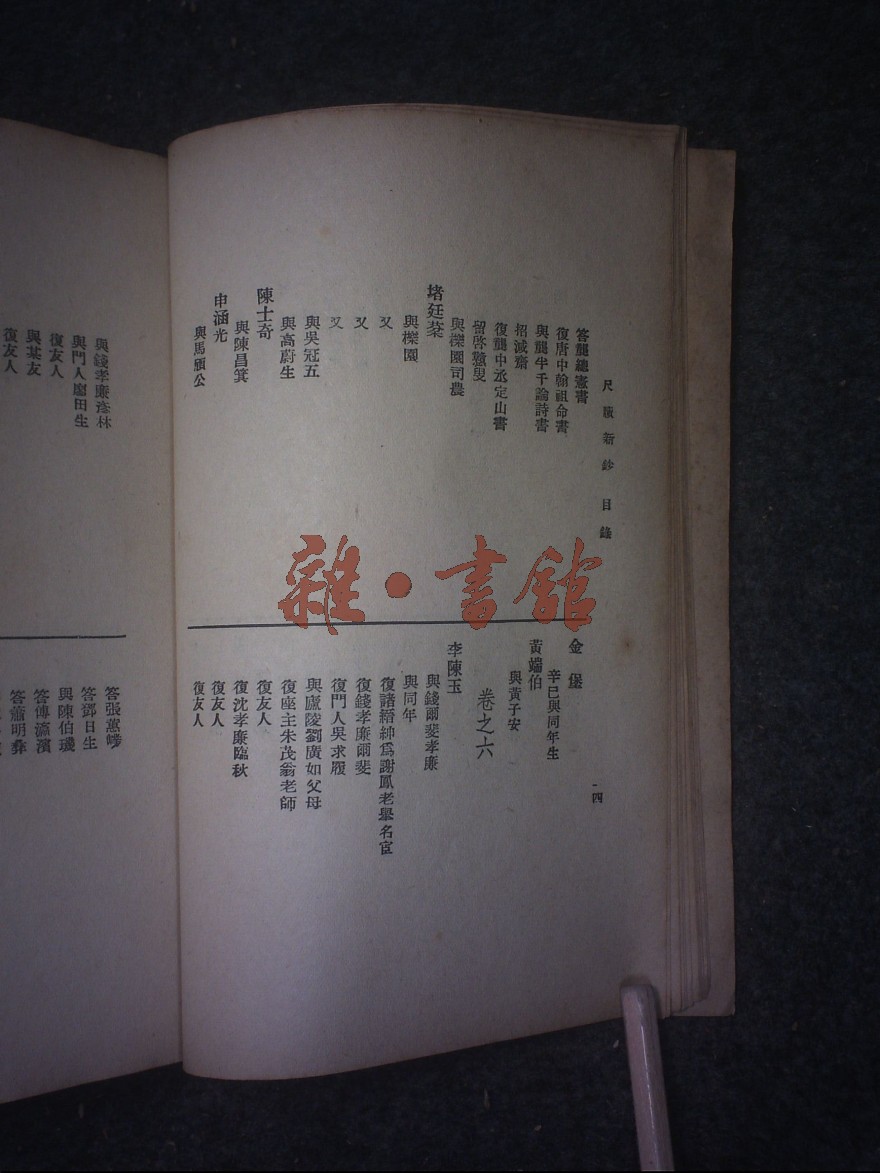 尺牘新鈔 目錄
四
答龔總憲書
復唐中翰祖命書
與龔半千論詩書
招減齋
復龔中丞定山書
留啓憨叟
與櫟園司農
堵廷棻
與櫟園
又
又
與吳冠五
又
與高蔚生
陳士奇
與陳昌箕
申涵光
與馬頎公
金堡
辛巳與同年生
黃端伯
與黃子安
卷之六
李陳玉
與錢爾斐孝廉
與同年
復諸縉紳爲謝鳳老舉名宦
復錢孝廉爾斐
復門人吳求履
與廬陵劉廣如父母
復座主朱茂翁老師
復友人
復沈孝廉臨秋
復友人
復友人
與錢孝廉彥林
與門人廖田生
復友人
與某友
復友人
答張蒿
答鄧日生
與陳伯璣
答傅瀛濱
答蕭明彝
雜·書館